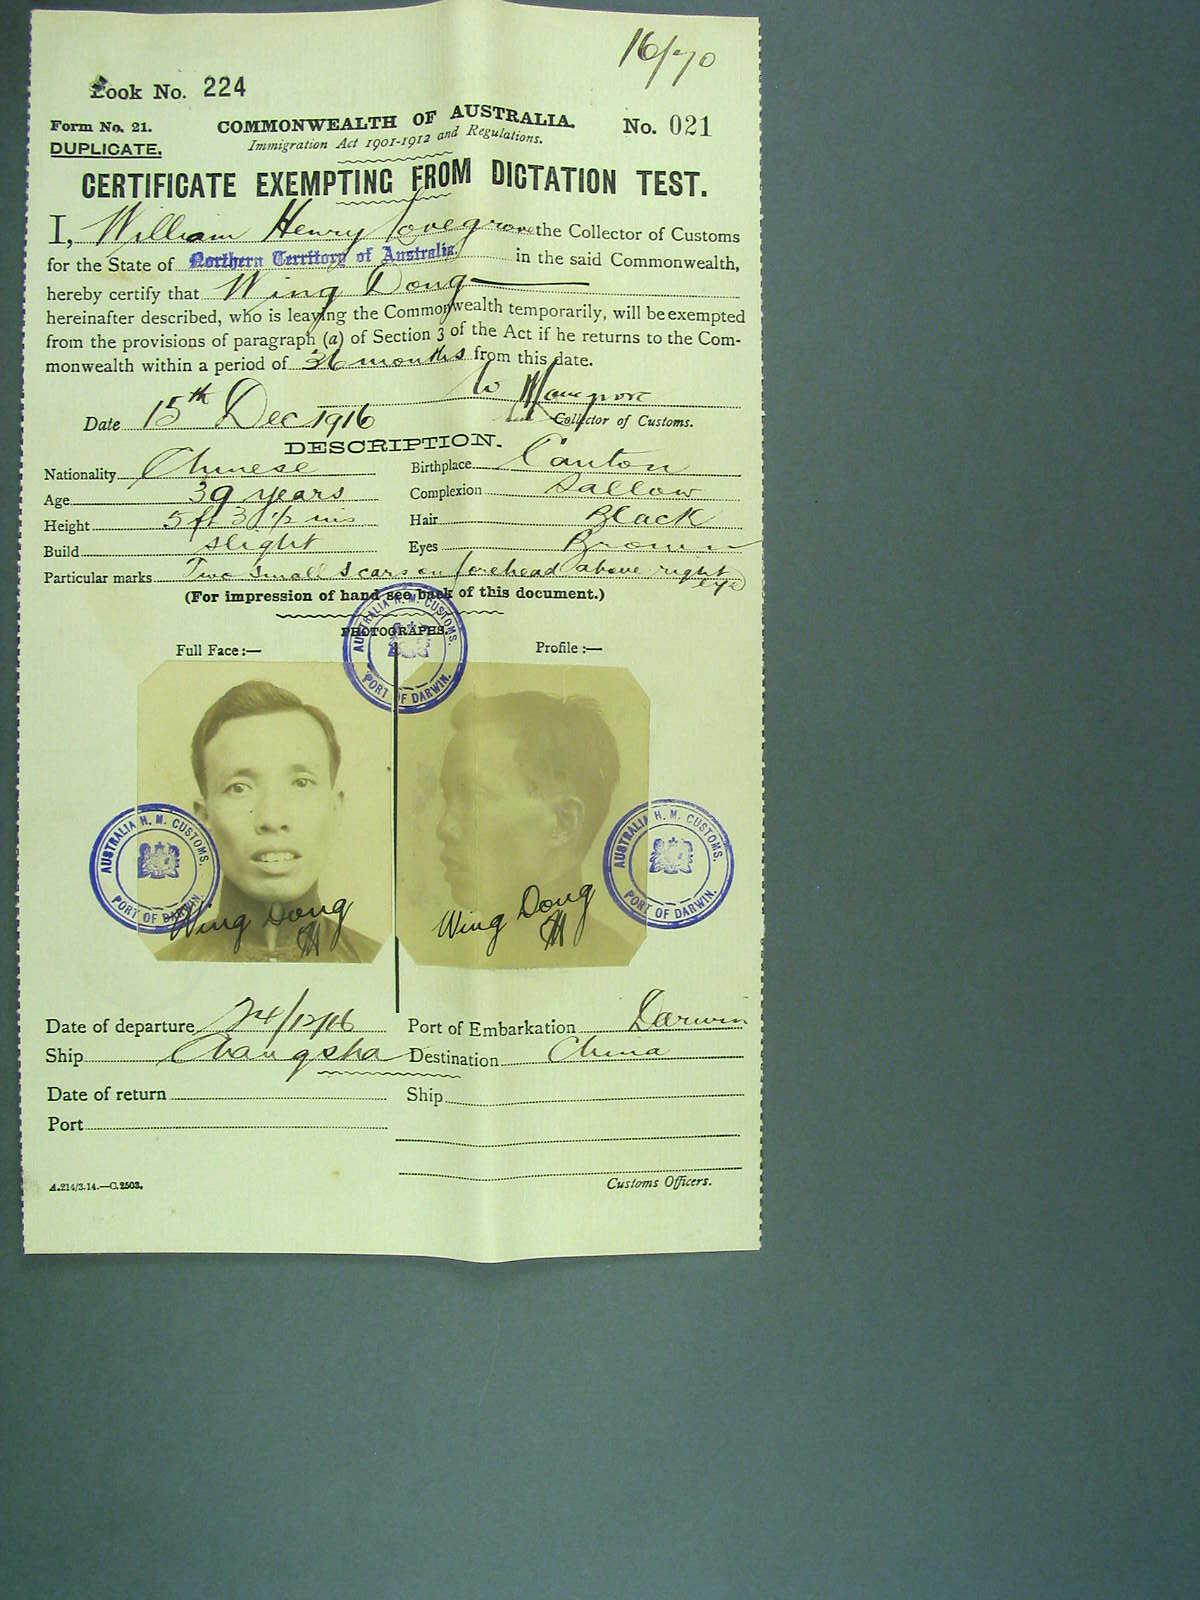 16/70
Book No. 224
Form No. 21.
DUPLICATE.
COMMONWEALTH OF AUSTRALIA.
Immigration Act 1901-1912 and Regulations.
No. 021
CERTIFICATE EXEMPTING FROM DICTATION TEST.
I, William Henry Lovegrove the Collector of Customs
for the State of Northern Territory of Australia. in the said Commonwealth,
hereby certify that Wing Dong
hereinafter described, who is leaving the Commonwealth temporarily, will be exempted
from the provisions of paragraph (a) of Section 3 of the Act if he returns to the Com-
monwealth within a period of 36 months from this date.
Date 15th Dec 1916
Collector of Customs.
DESCRIPTION.
Nationality Chinese Birthplace Canton
Age 39 years Complexion Sallow
Height 5 ft 3 1/2 ins Hair Black
Build slight Eyes Brown
Particular marks Two small scars on forehead above right eye
(For impression of hand see back of this document.)
PHOTOGRAPHS.
Full Face :— Profile :—
AUSTRALIA H. M. CUSTOMS. PORT OF DARWIN.
AUSTRALIA H. M. CUSTOMS. PORT OF DARWIN.
AUSTRALIA H. M. CUSTOMS. PORT OF DARWIN.
Wing Dong
Wing Dong
Date of departure 24/12/16 Port of Embarkation Darwin
Ship Changsha Destination China
Date of return Ship
Port
A.214/3.14.—C.2503.
Customs Officers.